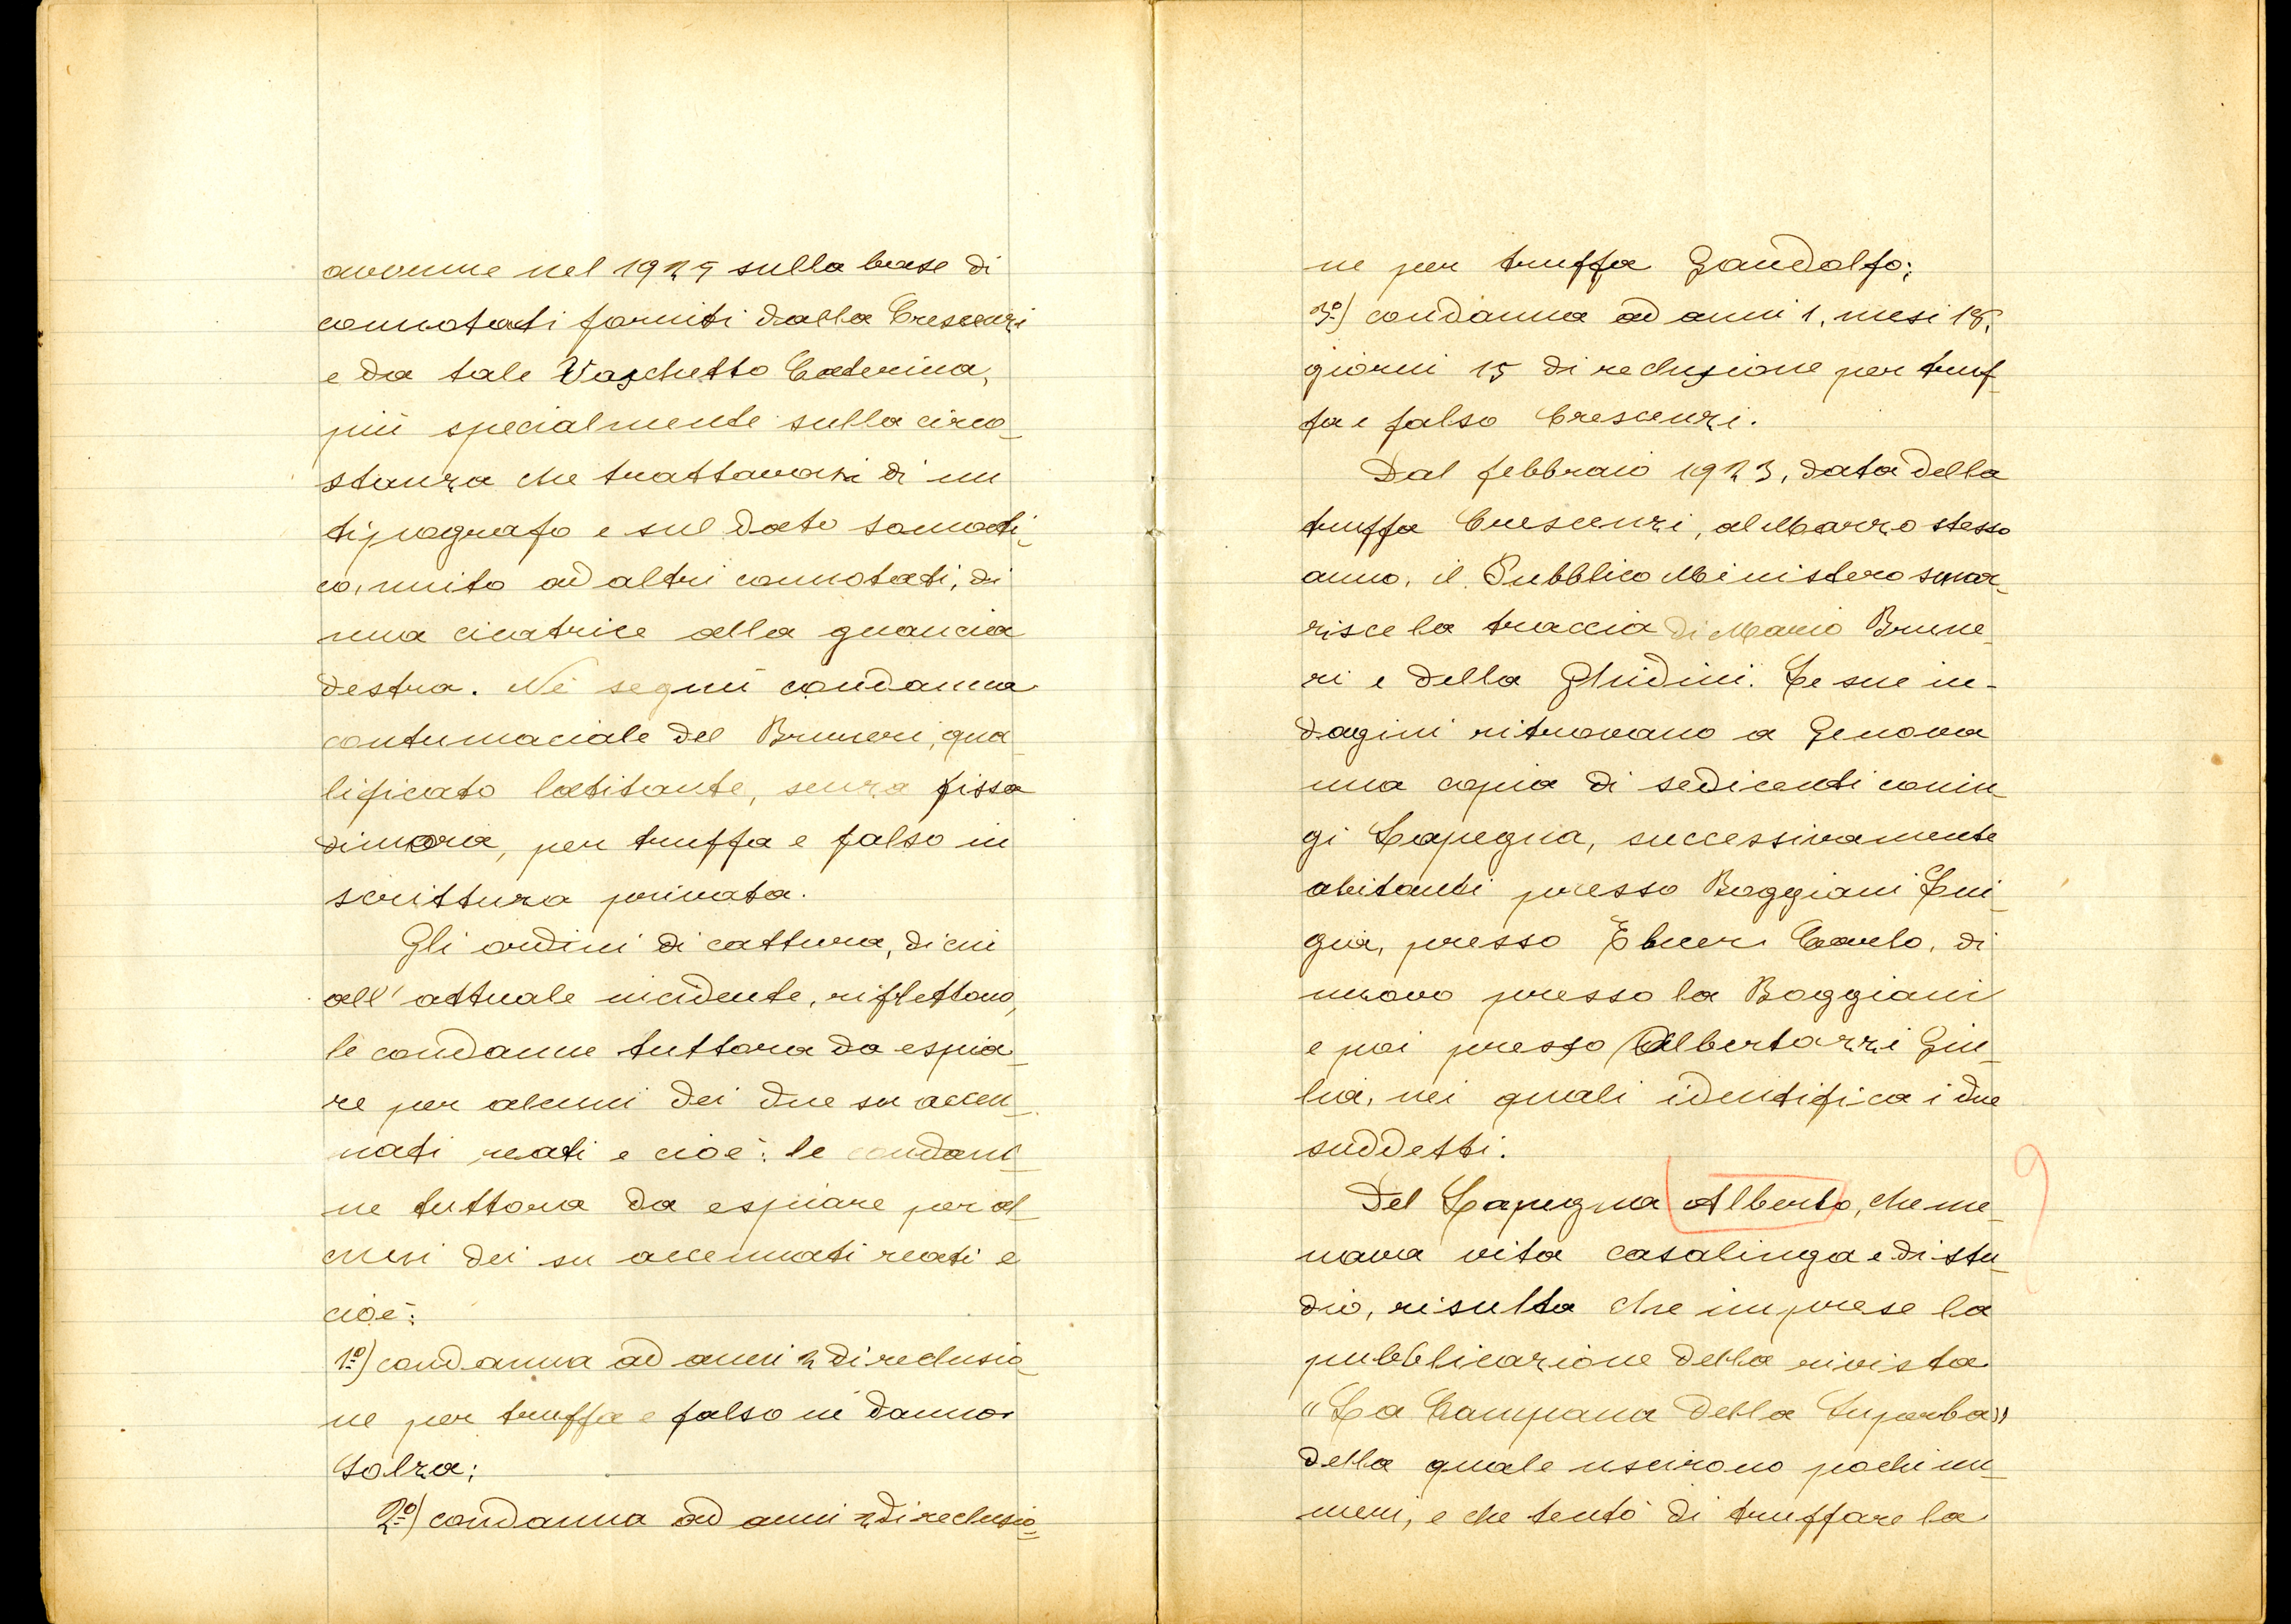 avvenne nel 1925 sulla base di
connotati forniti dalla Crescenzi
e da tale Vaschetto Caterina,
più specialmente sulla circo-
stanza che trattavasi di un
tipografo e sul dato somati-
co, unito ad altri connotati, di
una cicatrice alla guancia
destra. Ne seguì condanna
contumaciale del Bruneri, qua-
lificato latitante, senza fissa
dimora, per truffa e falso in
scrittura privata.
Gli ordini di cattura, di cui
all' attuale incidente, riflettono,
le condanne tuttora da espia-
re per alcuni dei due su accen-
nati reati e cioè: le condan-
ne tuttora da espiare per al-
cuni dei su accennati reati e
cioè:
1º) condanna ad anni 2 di reclusio-
ne per truffa e falso in danno
Solza;
2º) condanna ad anni 2 di reclusio-
ne per truffa Gandolfo;
3º) condanna ad anni 1, mesi 18,
giorni 15 di reclusione per truf-
fa e falso Crescenzi.
Dal febbraio 1923, data della
truffa Crescenzi, al Marzo stesso
anno, il Pubblico Ministero smar-
risce la traccia di Mario Brune-
ri e della Ghidini. Le sue in-
dagini ritrovano a Genova
una copia di sedicenti coniu-
gi Lapegna, successivamente
abitanti presso Boggiani Lui-
gia, presso Ebner Carlo, di
nuovo presso la Boggiani
e poi presso Albertazzi Giu-
lia, nei quali identifica i due
suddetti.
Del Lapegna Alberto, che me-
nava vita casalinga e di stu-
dio, risulta che imprese la
pubblicazione della rivista
"La Campana della Superba"
della quale uscirono pochi nu-
meri, e che tentò di truffare la